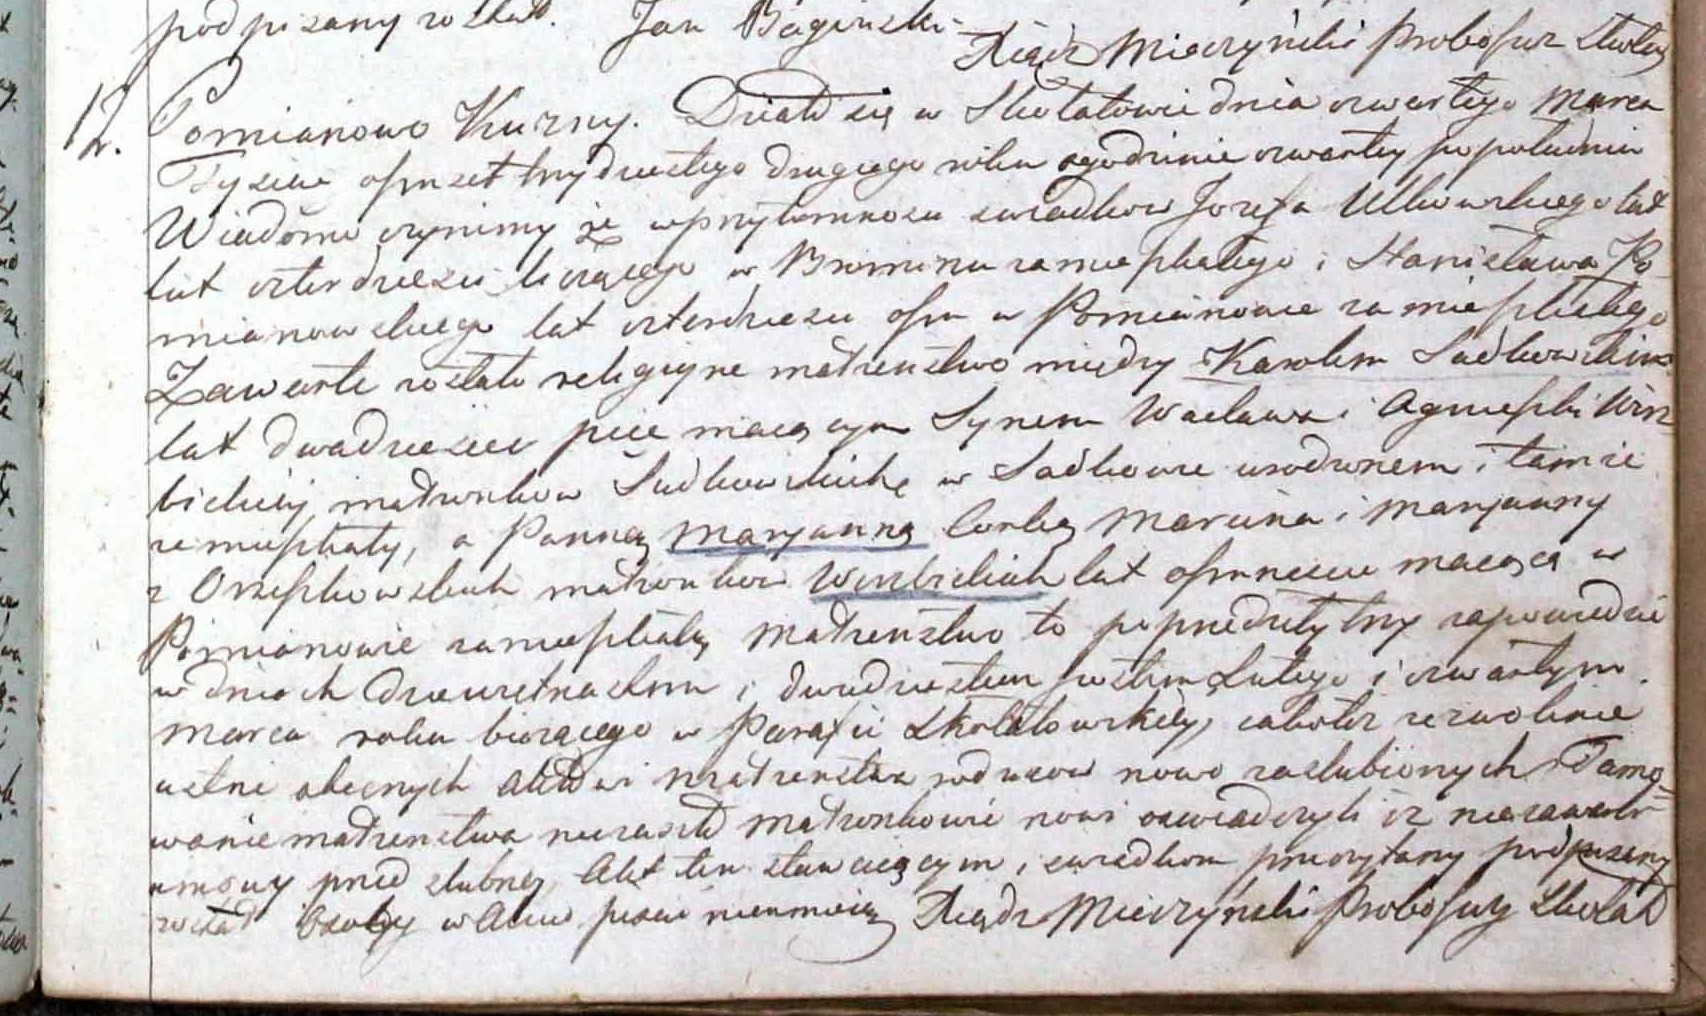 podpisany został. Jan Bagiński
Xiądz Mieczyński Proboszcz Skołat
12. Pomianowo Kuzny. Działo się w Skołatowie dnia czwartego Marca
Tysiąc ośmset trzydziestego drugiego roku o godzinie czwartej po południu
Wiadomo czynimy że w przytomności swiadków Jozefa Ulkowskiego lat
lat czterdzieści liczącego w Brominu zamieszkałego i Stanisława Po
mianowskiego lat czterdzieści ośm w Pomianowie zamieszkałego
Zawarte zostało religijne małzenstwo między Karolem Sadkowskim
lat dwadzieścia pięć mającym Synem Wacława i Agnieszki Wirz
bickiej małzonkow Sadkowskich w Sadkowie urodzonem i tamże
zamieszkały, a Panną Maryanną Corką Marcina i Maryanny
z Orzeszkowskich małzonkow Wirzbickich lat ośmnascie mającą w
Pomianowie zamieszkałą Małzenstwo to poprzedziły trzy zapowiedzie
w dniach dziewiętnastym i dwudziestem szostem Lutego i czwartym
Marca roku bieżącego w Parafii Skołatowskiej, jakoteż zezwolenie
ustne obecnych aktowi małzenstwa rodzicow nowo zaslubionych Tamo
wanie małzenstwa niezaszło Małzonkowie nowi oswiadczyli iż niezawarli
umowy przed slubnej, Akt ten stawiającym i swiadkom przeczytany podpisany
został Osoby w Akcie pisać nieumieją Xiądz Mieczyński Proboszcz Skołat